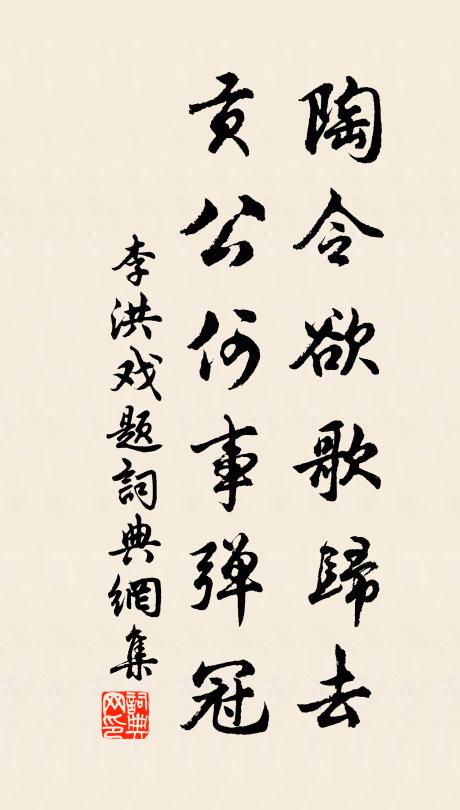 陶令欲歌歸去
貢公何事彈冠
李洪戏题詞典網集
詞典网印